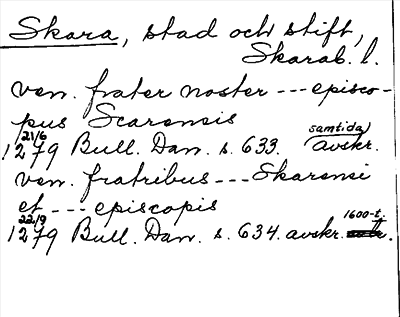 Skara, stad och stift,
Skarab. l.
ven. frater noster --- episco-
pus Scarensis
21/6 1279 Bull. Dan. s. 633. samtida avskr.
ven. fratribus --- Skarensi
et --- episcopis
22/9 1279 Bull. Dan. s. 634. avskr. 1600-t.